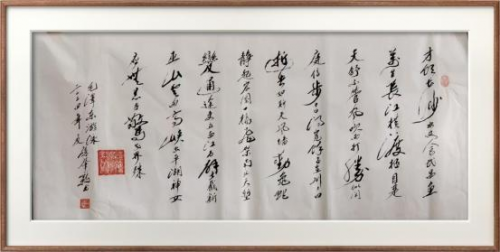 才饮长沙水又食武昌鱼
万里长江横渡极目楚
天舒不管风吹浪打胜似闲
庭信步今日得宽余子在川上曰
逝者如斯夫风樯动龟蛇
静起宏图一桥飞架南北天堑
变通途更立西江石壁截断
巫山云雨高峡出平湖神女
应无恙当惊世界殊
毛泽东游泳